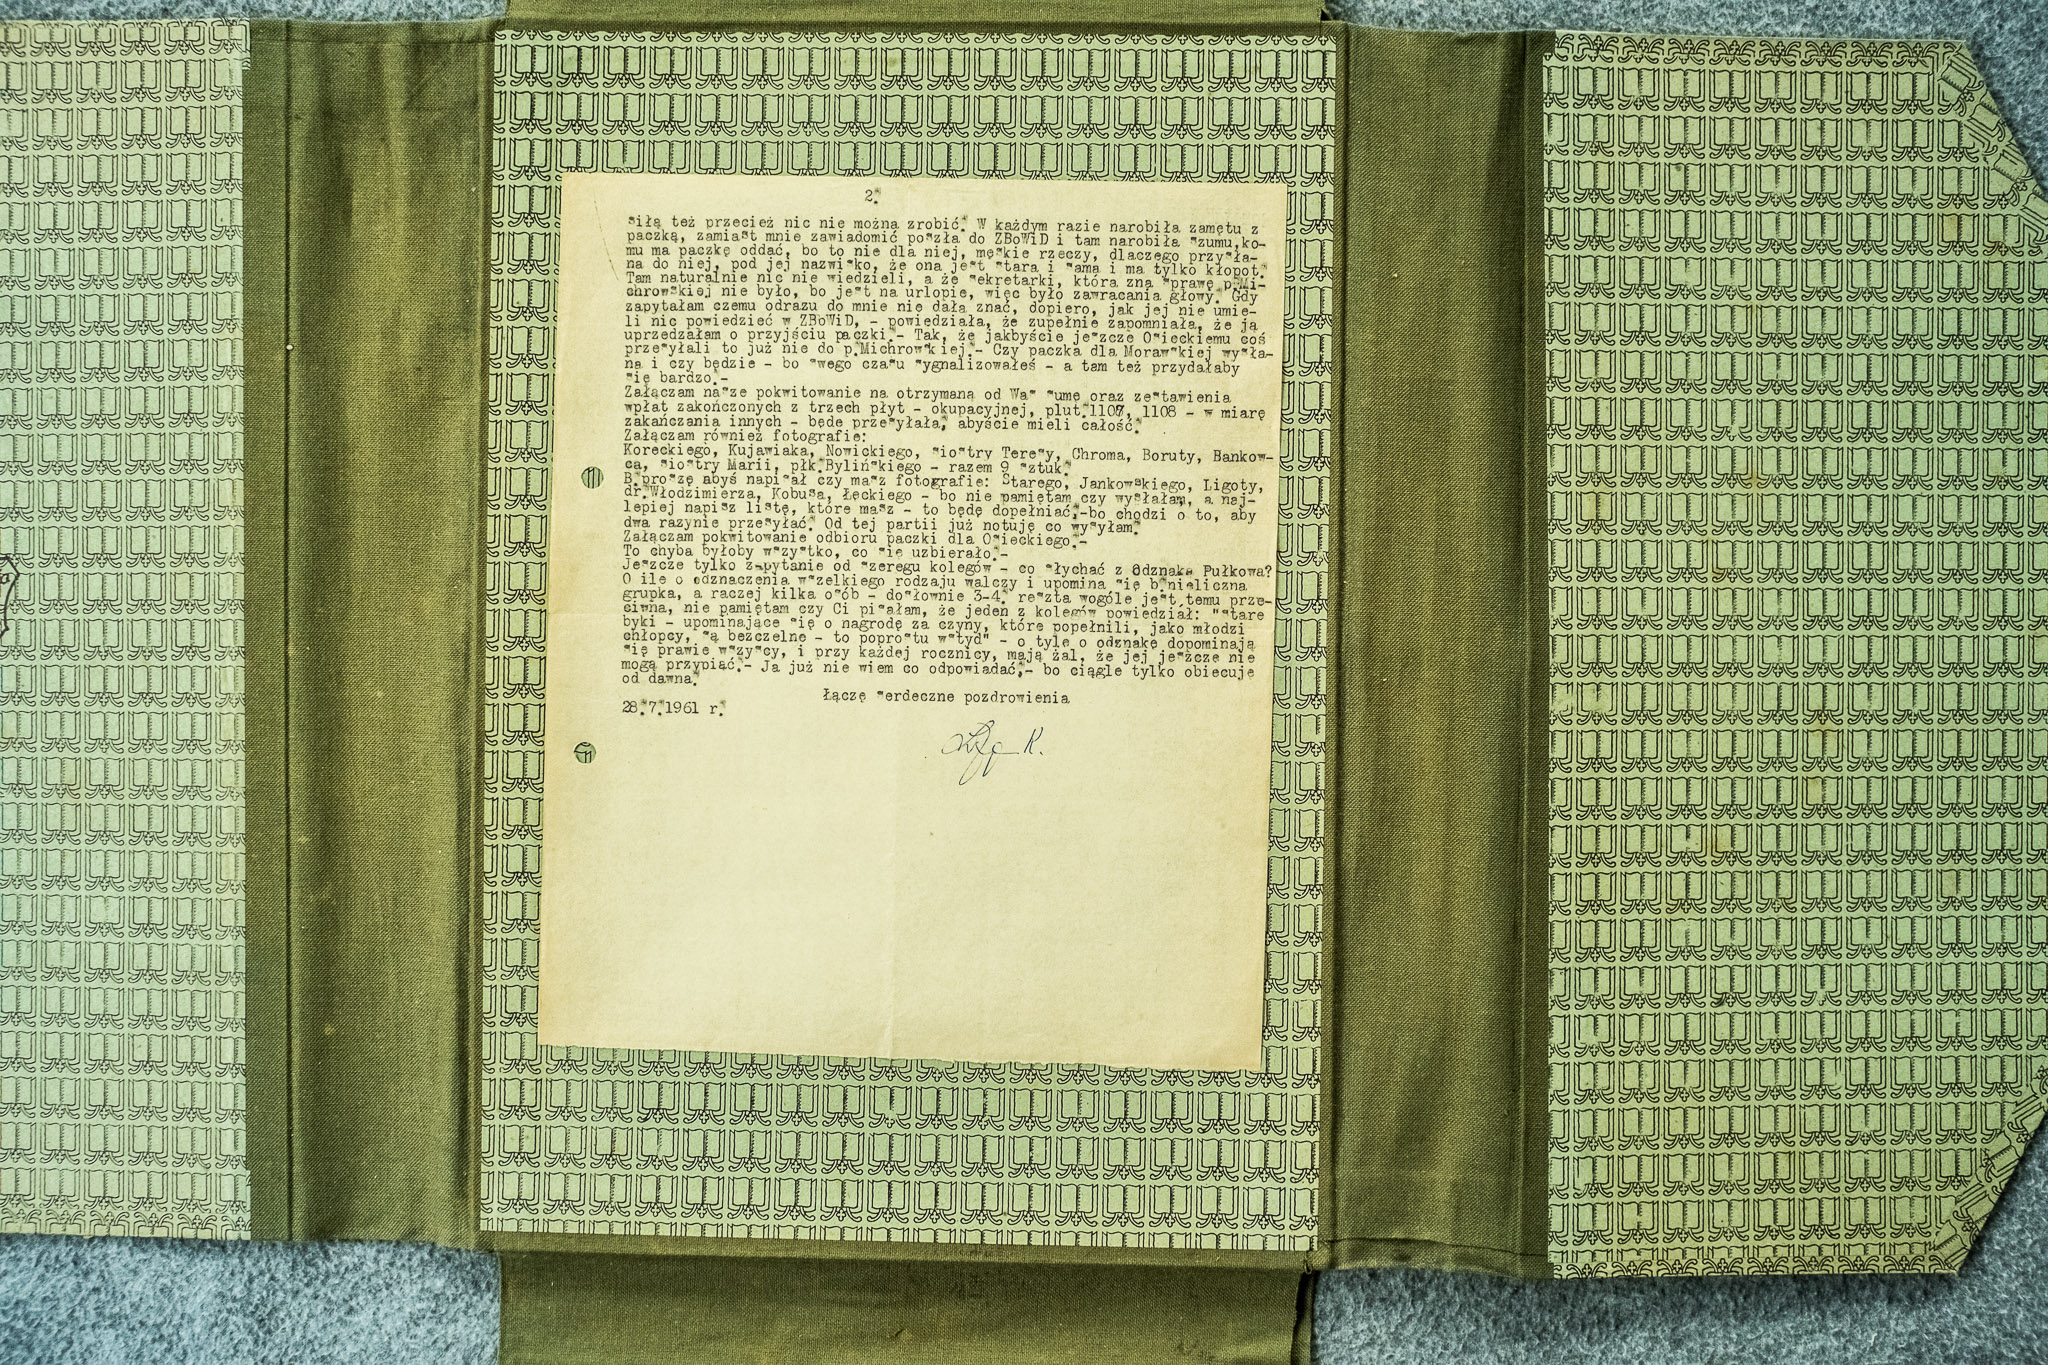 2.
siłą też przecież nic nie można zrobić. W każdym razie narobiła zamętu z
paczką, zamiast mnie zawiadomić poszła do ZBoWiD i tam narobiła szumu,ko-
mu ma paczkę oddać, bo to nie dla niej, męskie rzeczy, dlaczego przysła-
na do niej, pod jej nazwisko, że ona jest stara i sama i ma tylko kłopot.
Tam naturalnie nic nie wiedzieli, a że sekretarki, która zna sprawę p.Mi-
chrowskiej nie było, bo jest na urlopie, więc było zawracania głowy. Gdy
zapytałam czemu odrazu do mnie nie dała znać, dopiero, jak jej nie umie-
li nic powiedzieć w ZBoWiD, - powiedziała, że zupełnie zapomniała, że ją
uprzedzałam o przyjściu paczki.- Tak, że jakbyście jeszcze Osieckiemu coś
przesyłali to już nie do p.Michrowskiej.- Czy paczka dla Morawskiej wysła-
na i czy będzie - bo swego czasu sygnalizowałeś - a tam też przydałaby
się bardzo.-
Załączam nasze pokwitowanie na otrzymaną od Was sumę oraz zestawienia
wpłat zakończonych z trzech płyt - okupacyjnej, plut.1107, 1108 - w miarę
zakańczania innych - będę przesyłała, abyście mieli całość.
Załączam również fotografie:
Koreckiego, Kujawiaka, Nowickiego, siostry Teresy, Chroma, Boruty, Bankow-
ca, siostry Marii, płk.Bylińskiego - razem 9 sztuk.
B.proszę abyś napisał czy masz fotografie: Starego, Jankowskiego, Ligoty,
dr.Włodzimierza, Kobusa, Łęckiego - bo nie pamiętam czy wysłałam, a naj-
lepiej napisz listę, które masz - to będę dopełniać,-bo chodzi o to, aby
dwa razynie przesyłać. Od tej partii już notuję co wysyłam.
Załączam pokwitowanie odbioru paczki dla Osieckiego.-
To chyba byłoby wszystko, co się uzbierało.-
Jeszcze tylko zapytanie od szeregu kolegów - co słychać z Odznaką Pułkową?
O ile o odznaczenia wszelkiego rodzaju walczy i upomina się b.nieliczna
grupka, a raczej kilka osób - dosłownie 3-4, reszta wogóle jest temu prze-
ciwna, nie pamiętam czy Ci pisałam, że jeden z kolegów powiedział: "stare
byki - upominające się o nagrodę za czyny, które popełnili, jako młodzi
chłopcy, są bezczelne - to poprostu wstyd" - o tyle o odznakę dopominają
się prawie wszyscy, i przy każdej rocznicy, mają żal, że jej jeszcze nie
mogą przypiąć.- Ja już nie wiem co odpowiadać,- bo ciągle tylko obiecuję
od dawna.
Łączę serdeczne pozdrowienia
28.7.1961 r.